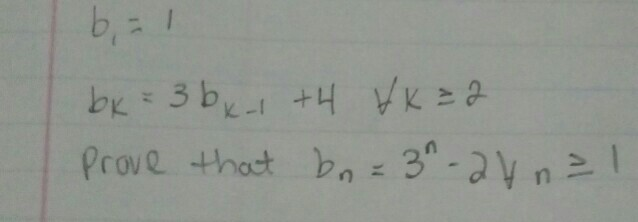 b₁ = 1
bₖ = 3bₖ₋₁ + 4 ∀k ≥ 2
Prove that bₙ = 3ⁿ - 2 ∀n ≥ 1